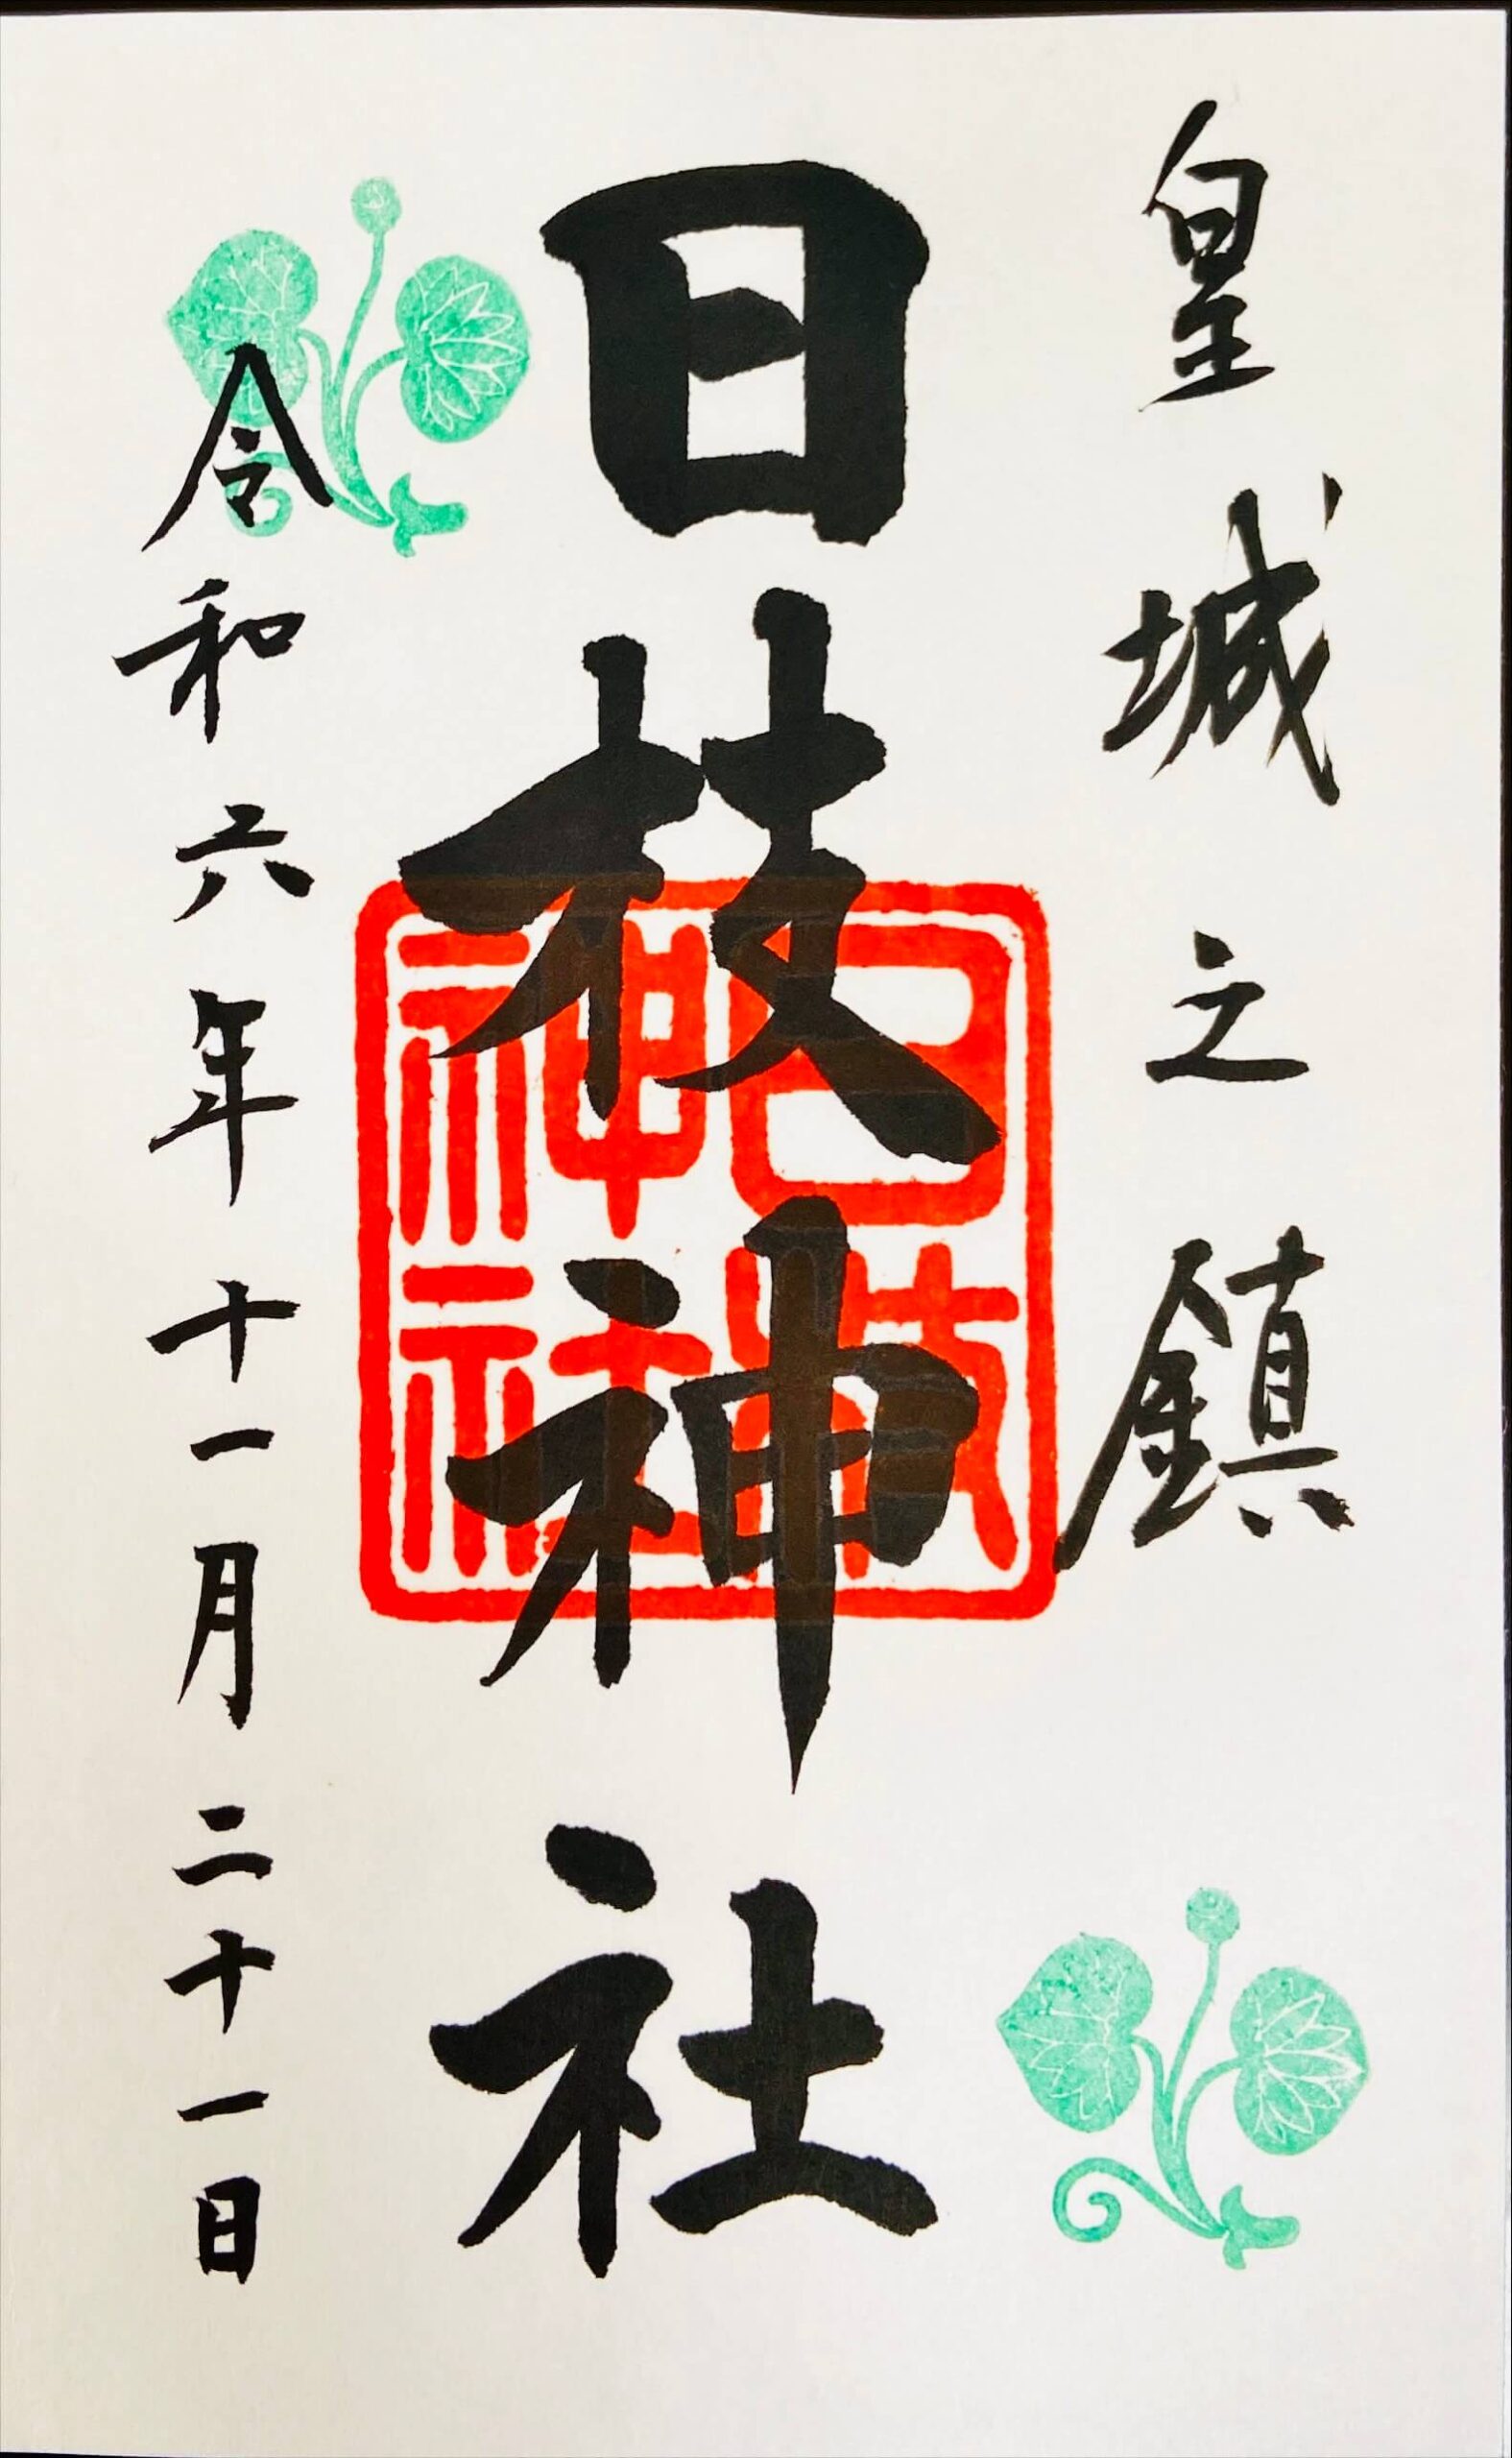 皇城之鎮
日枝神社
日枝神社
令和六年十一月二十一日